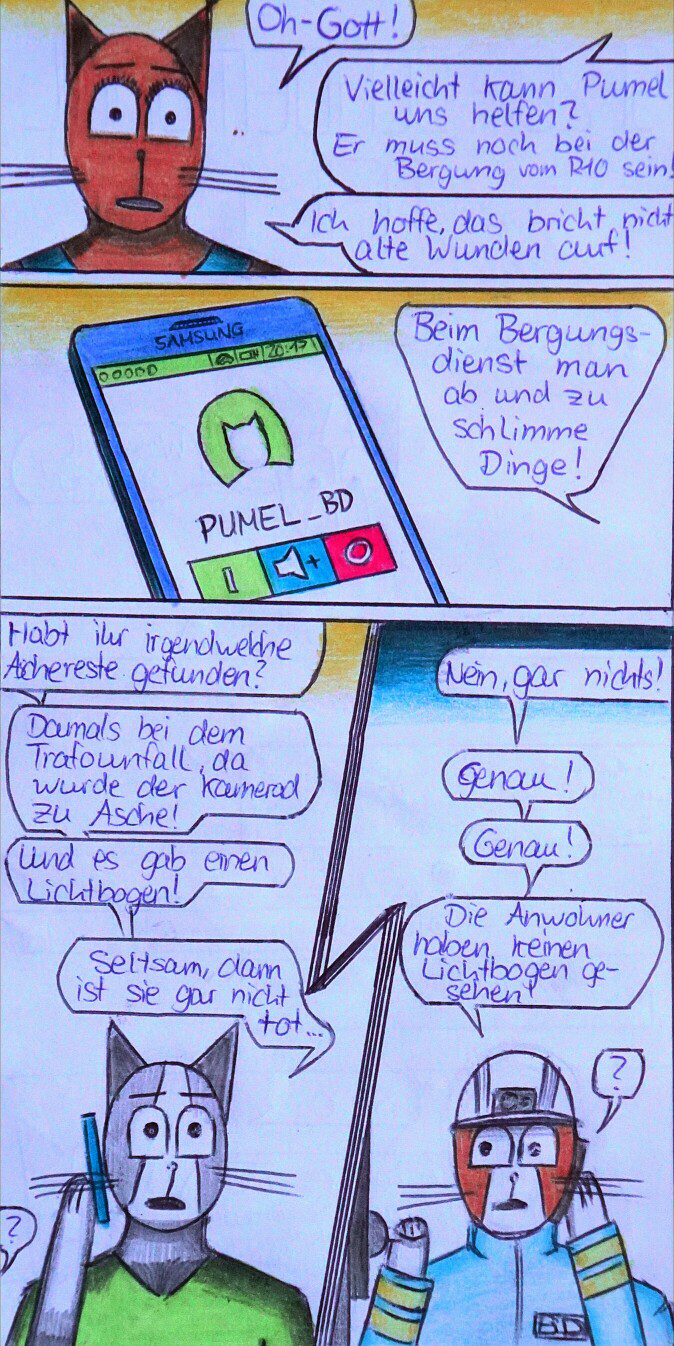 Oh-Gott!
Vielleicht kann Pumel
uns helfen?
Er muss noch bei der
Bergung vom R10 sein!
Ich hoffe, das bricht nicht
alte Wunden auf!
SAMSUNG
20:17
PUMEL_BD
+
Beim Bergungs-
dienst man
ab und zu
schlimme
Dinge!
Habt ihr irgendwelche
Aschereste gefunden?
Damals bei dem
Trafounfall, da
wurde der Kamerad
zu Asche!
Und es gab einen
Lichtbogen!
Seltsam, dann
ist sie gar nicht
tot...
?
Nein, gar nichts!
Genau!
Genau!
Die Anwohner
haben keinen
Lichtbogen ge-
sehen!
?
BD